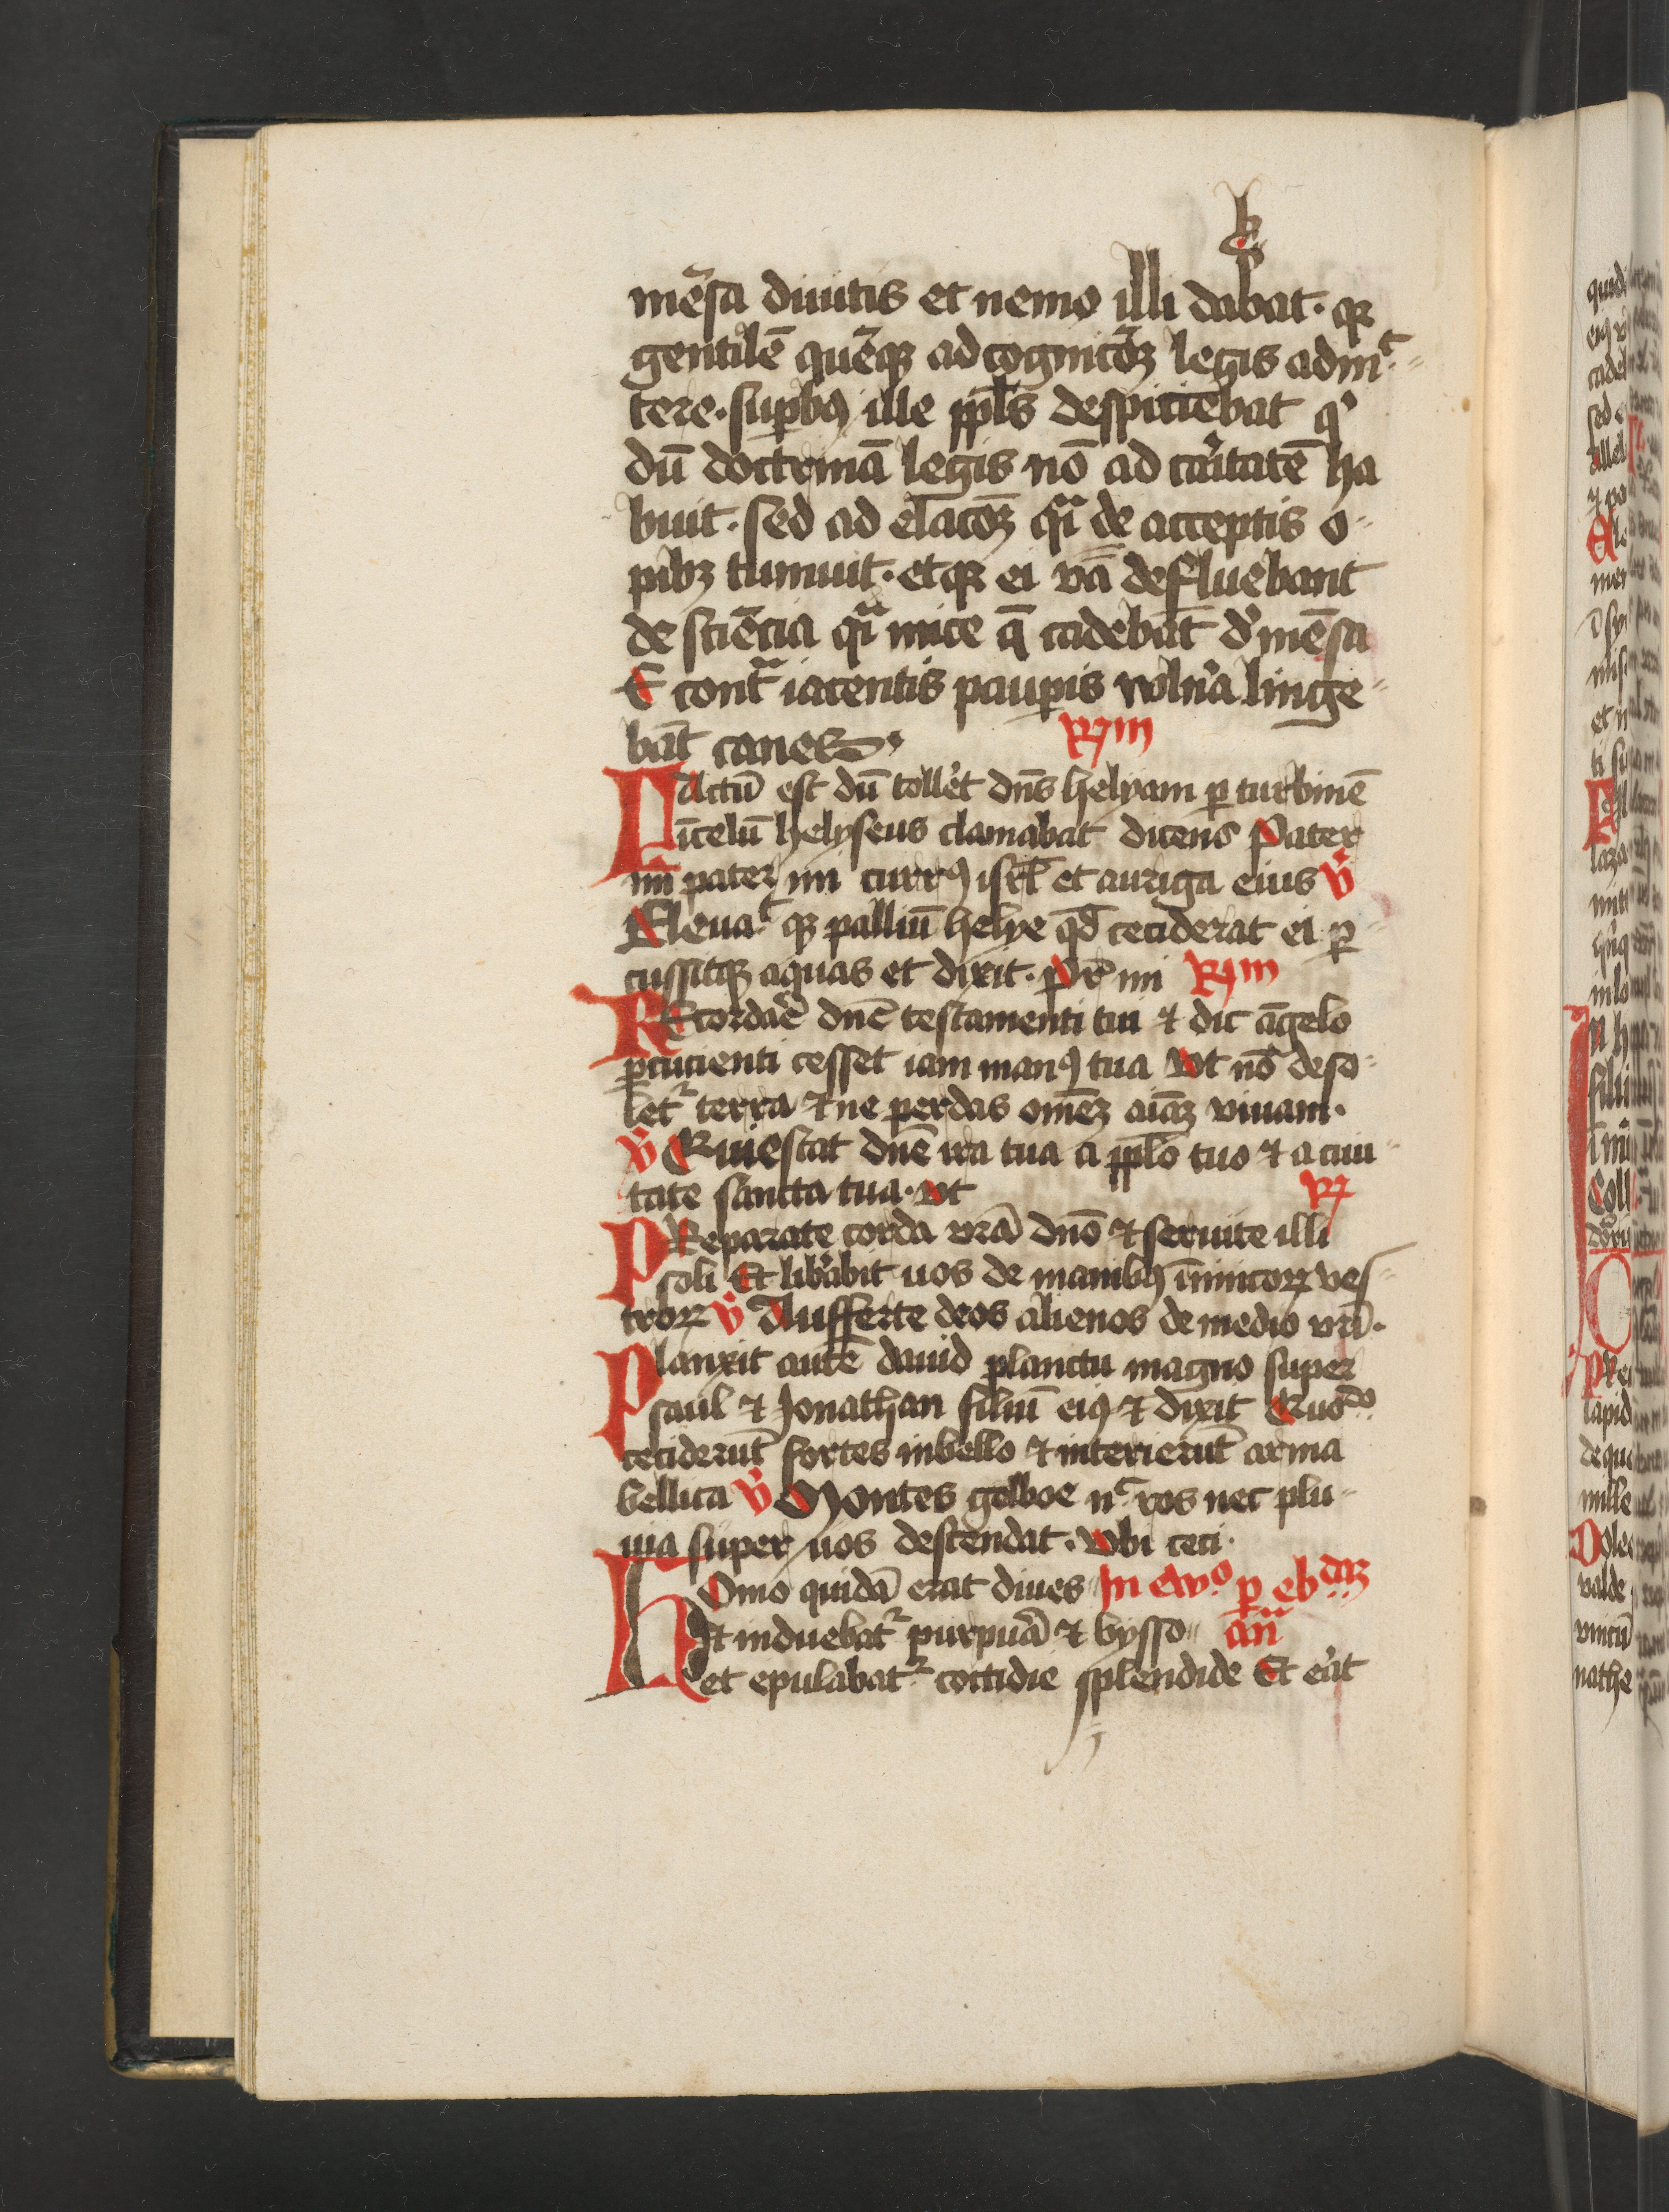 mẽsa diuitis et nemo illi dabat. qꝛ
gentilẽ quẽqꝫ ad cognicõꝫ legis admit-
tere. supbꝰ ille ppl̃s despiciebat qͥ
dũ doctrinã legis nõ ad caͥtatẽ ha
buit. sed ad elacõꝫ qͣi de acceptis o-
pibꝫ tumuit. et qꝛ ei v̾a defluebant
de sciẽcia qͣi mice q̃ cadebãt d̾ mẽsa
E contͣ iacentis paup̲is vuln̾a linge-
bãt canes
R̷m
Factũ est dũ toll̾et dñs helyam ꝑ turbinẽ
ĩ celũ helyseus clamabat dicens Pater
mi pater mi currꝰ isrl̃ et auriga eius v̾
Eleuaᵗ qꝫ palliũ helye qd̃ ceciderat ei ꝑ
cussitqꝫ aquas et dixit. Pr̃ mi R̷m
REcordar̃e dñe testamenti tui ⁊ dic ãgelo
ꝑcucienti cesset iam manꝰ tua Vt nõ deso-
letᷣ terra ⁊ ne perdas omẽꝫ aiãꝫ viuam.
v̾ Quiescat dñe ira tua a pplo̅ tuo ⁊ a ciui-
tate sancta tua. Vt R̷
PReparate corda vrã dño ⁊ seruite illi
soli Et lib̾abit uos de manibꝰ ĩmicoꝝ ves-
troꝝ v̾ Aufferte deos alienos de medio vrĩ.
Planxit autẽ dauid planctu magno super
saul ⁊ Jonathan filiũ eiꝰ ⁊ dixit Quoᵈᵒ
ceciderũt fortes in bello ⁊ interierũt arma
bellica v̾ Montes gelboe nᶜ ros nec plu-
uia super uos descendat. Vbi ceci.
HOmo quidã erat diues In ewᵒ ꝑ ebᵈᵃꝫ
Et induebatᷣ purpur̾a ⁊ bysso añ
et epulabatᷣ cottidie splendide Et er̾at